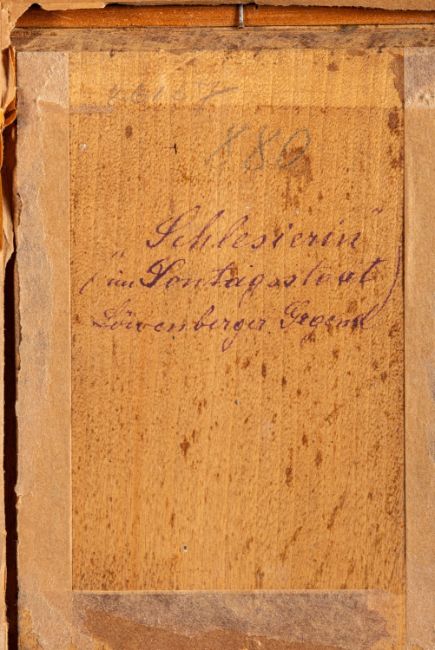 880
"Schlesierin"
("im Sontagsstaat)
Löwenberger Gegend